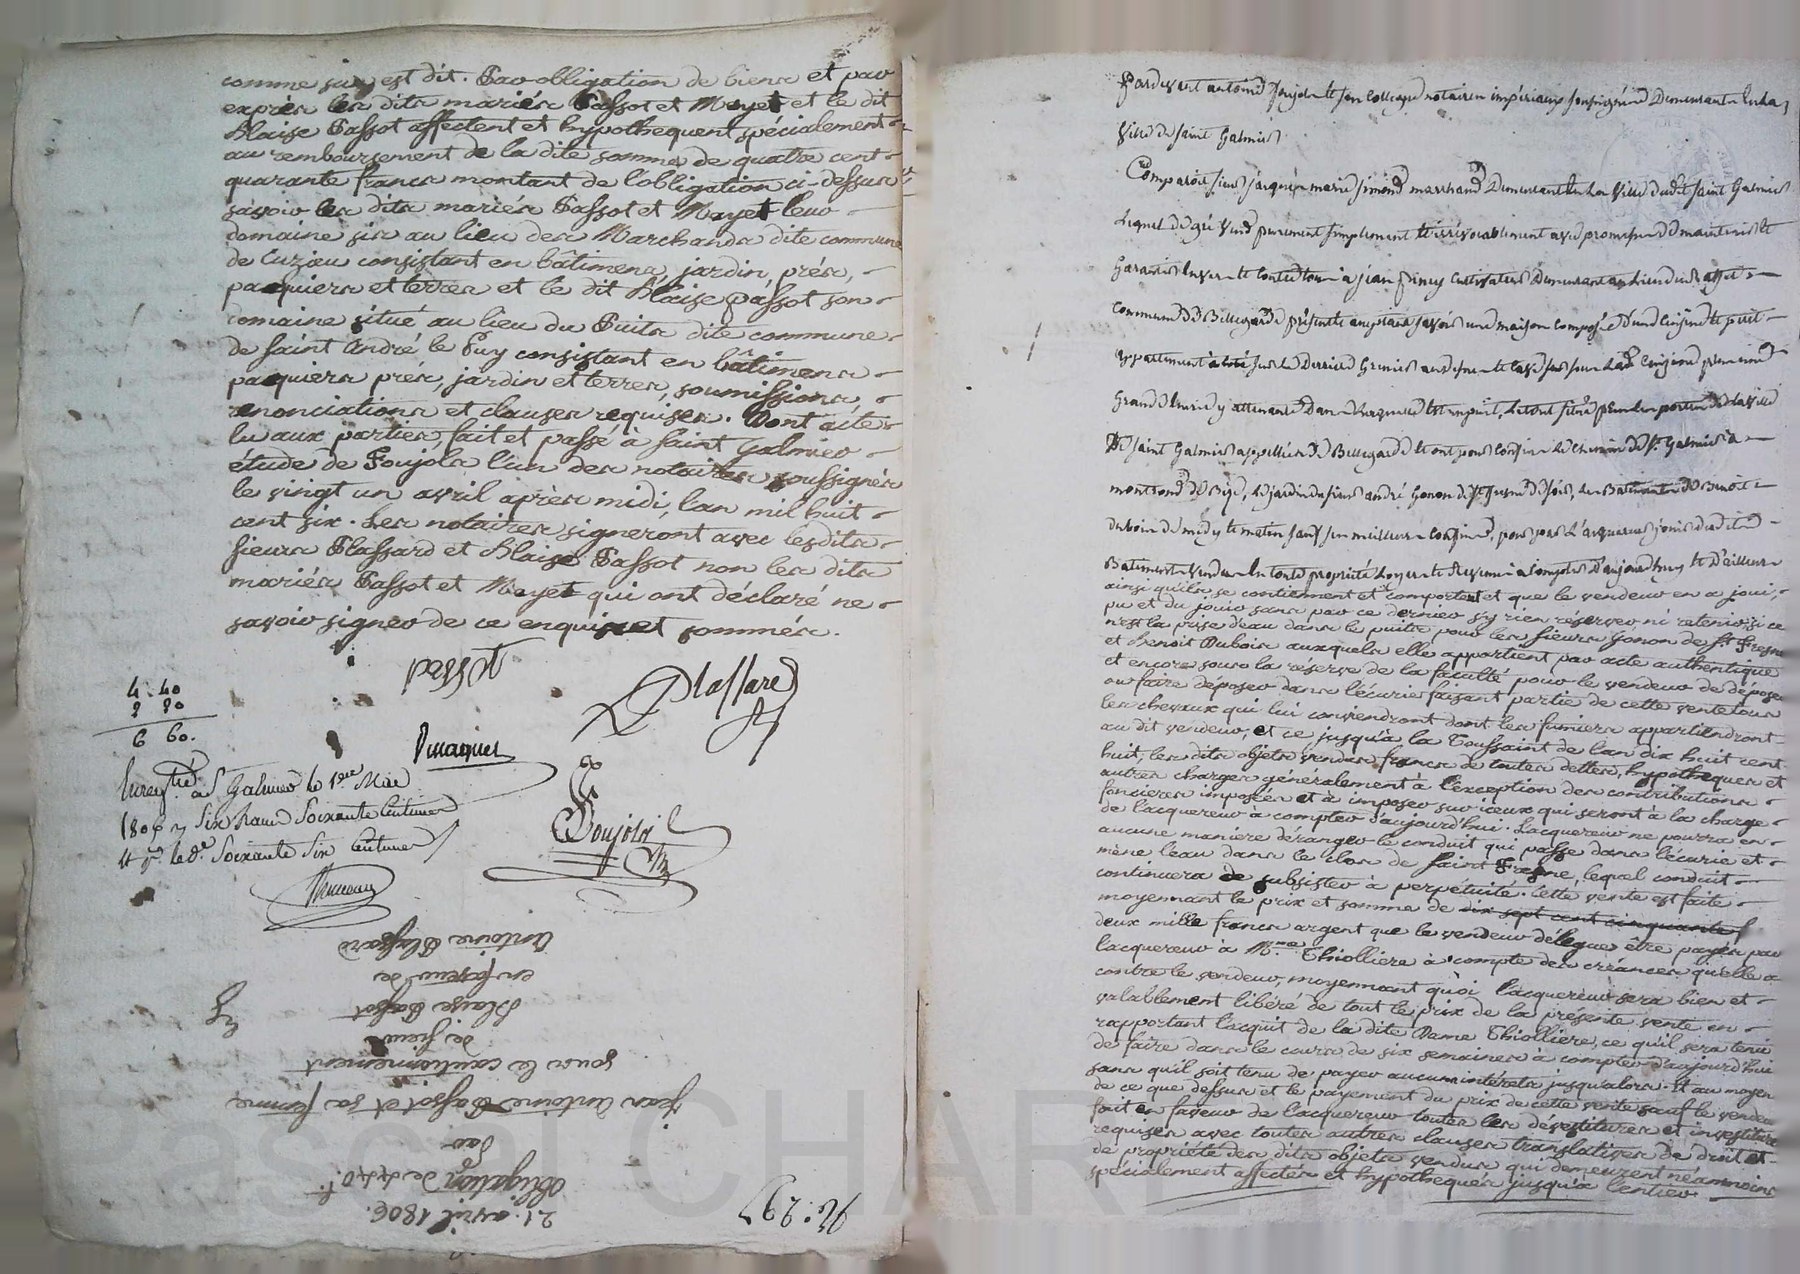 comme sus est dit. Par obligation de biens et par
exprès les dits mariés Passot et Mayet et le dit
Blaise Passot affectent et hypothequent spécialement
au remboursement de la dite somme de quatre cent
quarante francs montant de l'obligation ci-dessus
savoir les dits mariés Passot et Mayet leur
domaine sis au lieu des Marchands dite commune
de Cuzieu consistant en bâtimens, jardin, prés,
pasquiers et terres et le dit Blaise passot son
domaine situé au lieu du Puits dite commune
de saint André le Puy consistant en bâtimens
pasquiers prés, jardin et terres, soumissions,
renonciations et clauses requises. Dont acte
lu aux parties, fait et passé à saint Galmier
étude de Poujols l'un des notaires soussignés
le vingt un avril après midi, l'an mil huit
cent six. Les notaires signeront avec lesdits
sieurs Plassard et Blaise Passot non les dits
mariés Passot et Mayet qui ont déclaré ne
savoir signer de ce enquis et sommés.
Passot
Plassard
4 40
2 20
6 60.
Enregtré à St Galmier le 1er Mai
1806 Six francs Soixante Centimes
Soixante Six Centimes
Poujols
21. avril 1806.
Obligation de 440 f.
par
jean Antoine Passot et sa femme
sous le cautionnement
de sieur
Blaise Passot
en faveur de
Antoine Plassard
N.° 297
Pardevant antoine Poujols et son collegue notaires impériaux soussignés Demeurants en la
Ville de saint Galmier
Comparoit sieur jacques marie simond marchand Demeurant en la Ville dudit saint Galmier
Lequel de gré Vend purement simplement et irrévocablement avec promesse de maintenir et
Garantir envers et contre tous à jean cultivateur Demeurant au lieu
commune de Bellegarde présent et acceptant savoir une maison composée d'une cuisine et petit
appartement à côté sur le Derriere Grenier au dessus et cave
Grande Ecurie y attenante
De saint Galmier appellée de Bellegarde et ont pour confins le chemin de St Galmier à
montrond de Bize, le jardin du sieur andré Gonon de St fresne de soir, les Batiments de Benoit
dubois de midy et matin sauf ses meilleurs confins, pour par l'acquereur jouir desdits
Batiments Vendus en toute propriété à compter D'aujourd'huy et D'ailleurs
ainsi qu'ils se contiennent et comportent et que le vendeur en a joui,
pu et du jouir sans par ce dernier s'y rien réserver ni retenir si ce
n'est la prise d'eau dans le puits pour les sieurs Gonon de St. Fresne
et Benoit Dubois auxquels elle appartient par acte authentique
et encore sous la réserve de la faculté pour le vendeur de déposer
ou faire déposer dans l'écurie faisant partie de cette vente tous
les chevaux qui lui conviendront dont les fumiers appartiendront
au dit vendeur, et ce jusqu'à la Toussaint de l'an dix huit cent
huit, les dits objets vendus francs de toutes dettes, hypotheques et
autres charges généralement à l'exception des contributions
foncieres imposées et à imposer sur iceux qui seront à la charge
de l'acquereur à compter d'aujourd'hui. L'acquereur ne pourra en
aucune maniere déranger le conduit qui passe dans l'écurie et
mène l'eau dans le clos de saint Fresne, lequel conduit
continuera de subsister à perpétuité. Cette vente est faite
moyennant le prix et somme de dix sept cent cinquante
deux mille francs argent que le vendeur délegue être payés par
l'acquereur à Mme Thiolliere à compte des créances qu'elle a
contre le vendeur, moyennant quoi l'acquereur sera bien et
valablement libéré de tout le prix de la présente vente en
rapportant l'acquit de la dite Dame Thiolliere, ce qu'il sera tenu
de faire dans le cours de six semaines à compter d'aujourd'hui
sans qu'il soit tenu de payer aucun intérets jusqu'alors. Et au moyen
de ce que dessus et le payement du prix de cette vente sauf le vendeur
fait en faveur de l'acquereur toutes les dévestitures et investitures
requises avec toutes autres clauses translatives de droit et
de propriété des dits objets vendus qui demeurent néanmoins
spécialement affectés et hypothequés jusqu'à l'entier